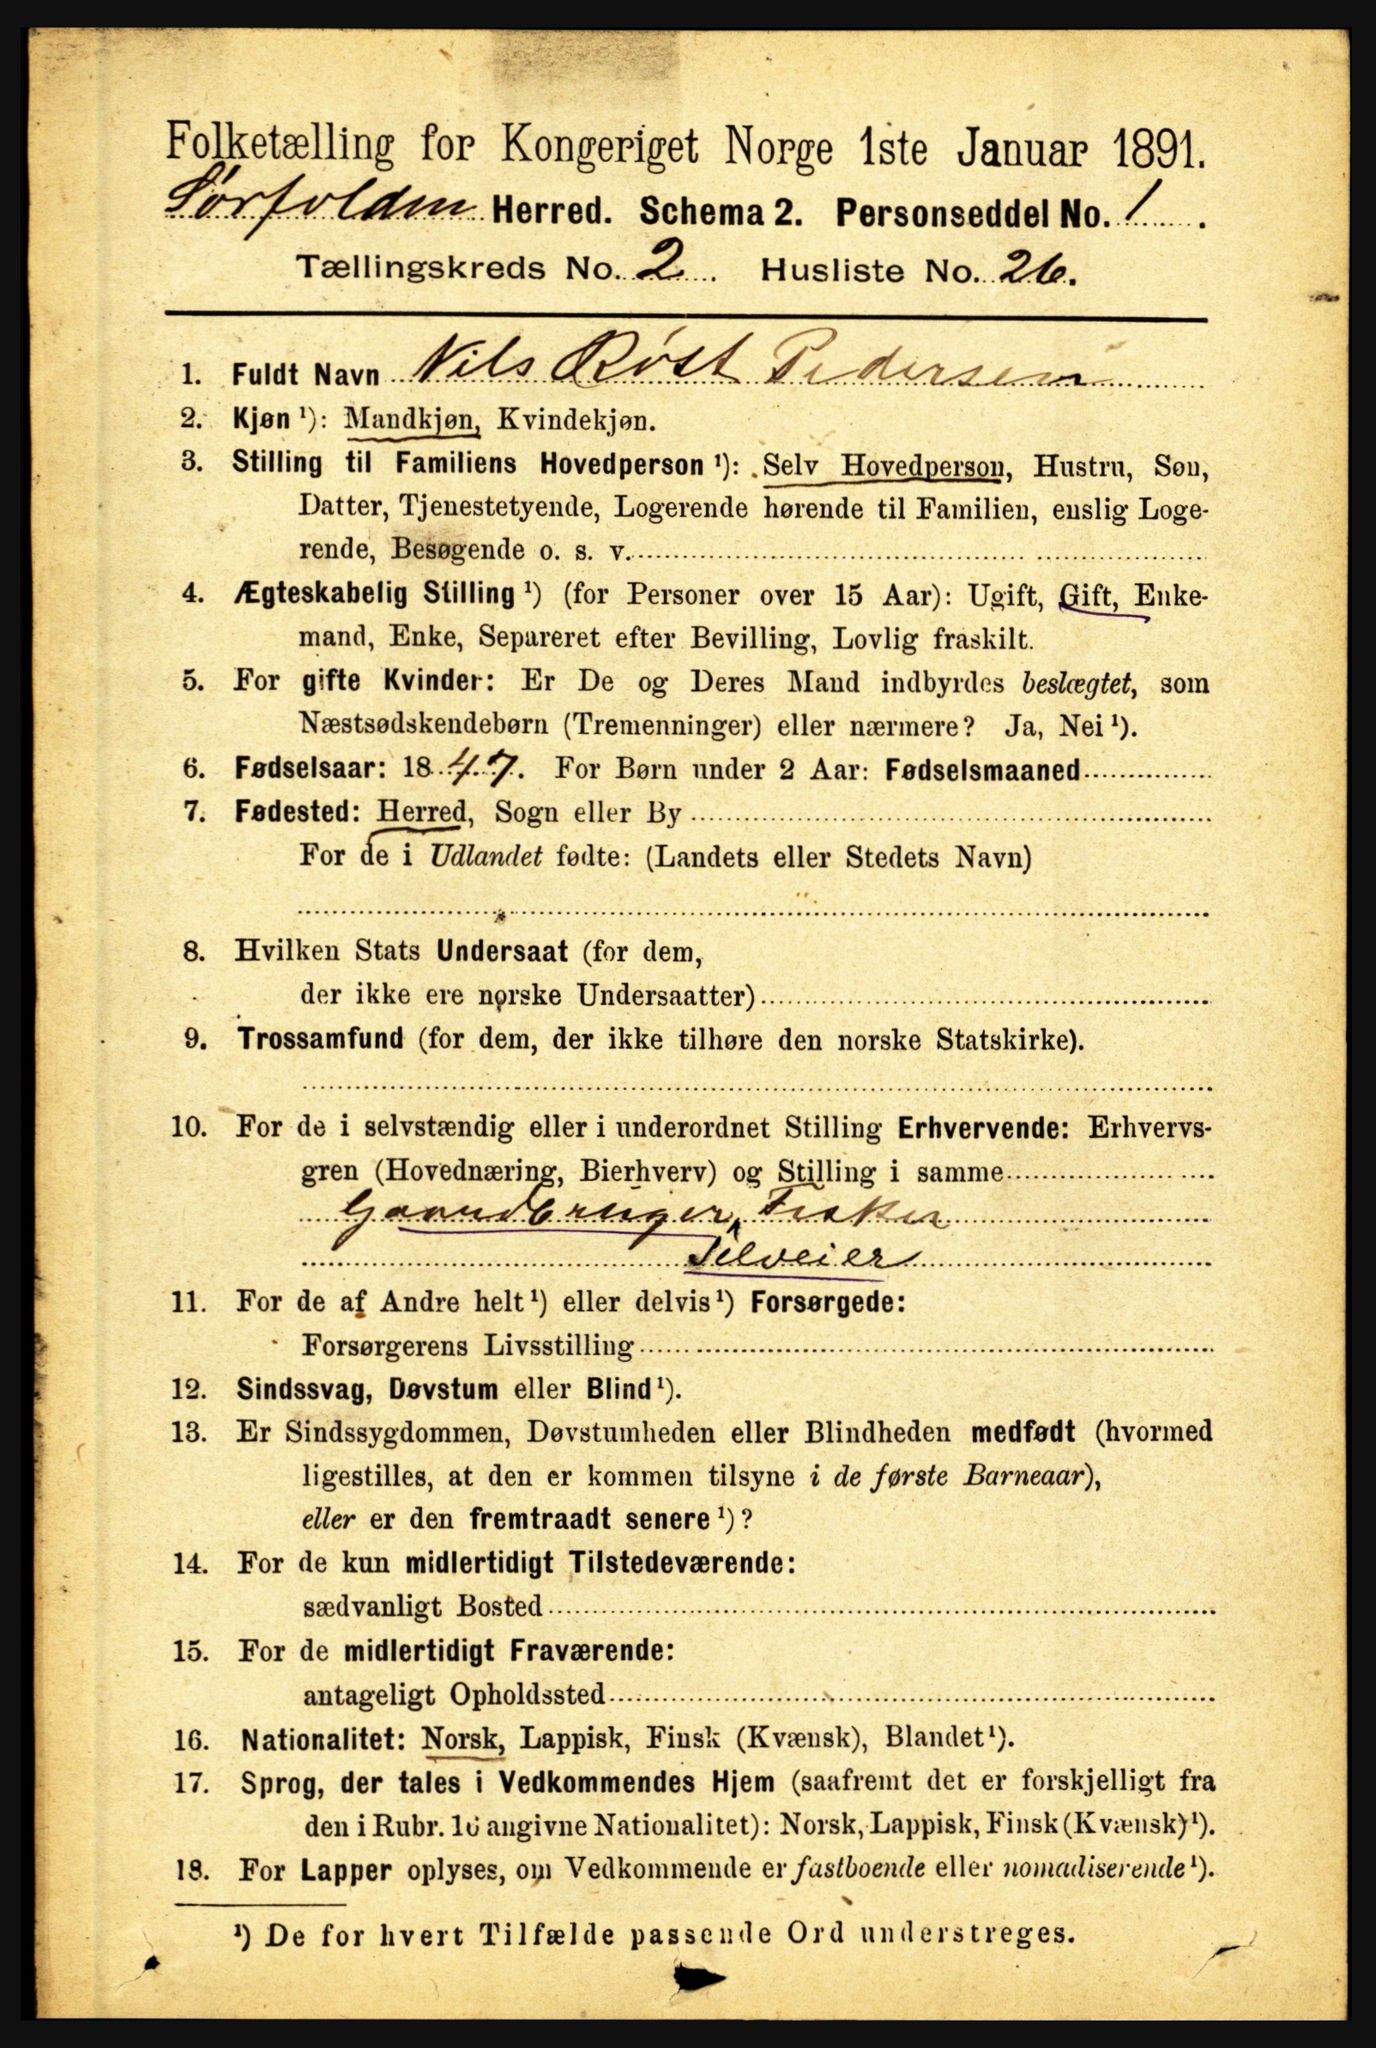 Folketælling for Kongeriget Norge 1ste Januar 1891.
Sørfolden Herred. Schema 2. Personseddel No. 1.
Tællingskreds No. 2. Husliste No. 26.
1. Fuldt Navn Nils Røst Pedersen
2. Kjøn ¹): Mandkjøn, Kvindekjøn.
3. Stilling til Familiens Hovedperson ¹): Selv Hovedperson, Hustru, Søn,
Datter, Tjenestetyende, Logerende hørende til Familien, enslig Loge-
rende, Besøgende o. s. v.
4. Ægteskabelig Stilling ¹) (for Personer over 15 Aar): Ugift, Gift, Enke-
mand, Enke, Separeret efter Bevilling, Lovlig fraskilt.
5. For gifte Kvinder: Er De og Deres Mand indbyrdes beslægtet, som
Næstsødskendebørn (Tremenninger) eller nærmere? Ja, Nei ¹).
6. Fødselsaar: 1847. For Børn under 2 Aar: Fødselsmaaned
7. Fødested: Herred, Sogn eller By
For de i Udlandet fødte: (Landets eller Stedets Navn)
8. Hvilken Stats Undersaat (for dem,
der ikke ere norske Undersaatter)
9. Trossamfund (for dem, der ikke tilhøre den norske Statskirke).
10. For de i selvstændig eller i underordnet Stilling Erhvervende: Erhvervs-
gren (Hovednæring, Bierhverv) og Stilling i samme
Gaardbruger, Fisker
Selveier
11. For de af Andre helt ¹) eller delvis ¹) Forsørgede:
Forsørgerens Livsstilling
12. Sindssvag, Døvstum eller Blind ¹).
13. Er Sindssygdommen, Døvstumheden eller Blindheden medfødt (hvormed
ligestilles, at den er kommen tilsyne i de første Barneaar),
eller er den fremtraadt senere ¹)?
14. For de kun midlertidigt Tilstedeværende:
sædvanligt Bosted
15. For de midlertidigt Fraværende:
antageligt Opholdssted
16. Nationalitet: Norsk, Lappisk, Finsk (Kvænsk), Blandet ¹).
17. Sprog, der tales i Vedkommendes Hjem (saafremt det er forskjelligt fra
den i Rubr. 16 angivne Nationalitet): Norsk, Lappisk, Finsk (Kvænsk) ¹).
18. For Lapper oplyses, om Vedkommende er fastboende eller nomadiserende ¹).
¹) De for hvert Tilfælde passende Ord understreges.